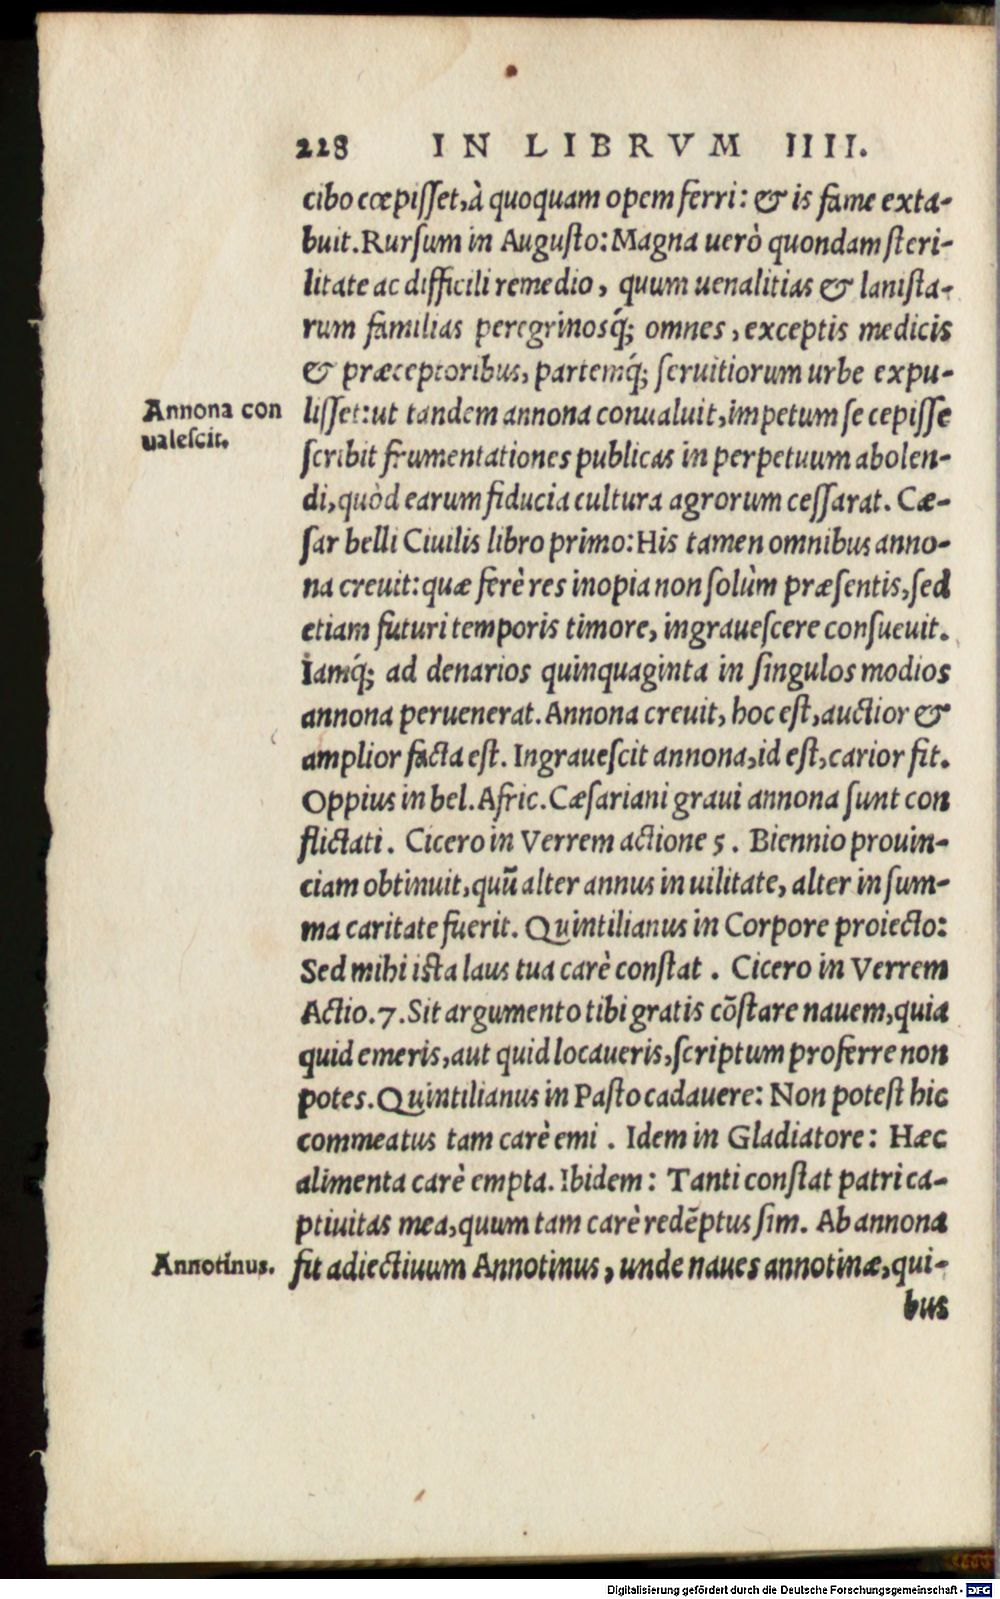 228 IN LIBRVM IIII.
cibo cœpiſſet, à quoquam opem ferri: & is fame exta-
buit. Rurſum in Auguſto: Magna uerò quondam ſteri-
litate ac difficili remedio, quum uenalitias & laniſta-
rum familias peregrinosq́; omnes, exceptis medicis
& præceptoribus, partemq́; ſeruitiorum urbe expu-
Annona con
ualeſcit.
liſſet: ut tandem annona conualuit, impetum ſe cepiſſe
ſcribit frumentationes publicas in perpetuum abolen-
di, quòd earum fiducia cultura agrorum ceſſarat. Cæ-
ſar belli Ciuilis libro primo: His tamen omnibus anno-
na creuit: quæ ferè res inopia non ſolùm præſentis, ſed
etiam futuri temporis timore, ingraueſcere conſueuit.
Iamq́; ad denarios quinquaginta in ſingulos modios
annona peruenerat. Annona creuit, hoc eſt, auctior &
amplior facta eſt. Ingraueſcit annona, id eſt, carior fit.
Oppius in bel. Afric. Cæſariani graui annona ſunt con
flictati. Cicero in Verrem actione 5. Biennio prouin-
ciam obtinuit, quũ alter annus in uilitate, alter in ſum-
ma caritate fuerit. Quintilianus in Corpore proiecto:
Sed mihi iſta laus tua carè conſtat. Cicero in Verrem
Actio. 7. Sit argumento tibi gratis cõſtare nauem, quia
quid emeris, aut quid locaueris, ſcriptum proferre non
potes. Quintilianus in Paſto cadauere: Non poteſt hic
commeatus tam carè emi. Idem in Gladiatore: Hæc
alimenta carè empta. Ibidem: Tanti conſtat patri ca-
ptiuitas mea, quum tam carè redẽptus ſim. Ab annona
Annotinus.
fit adiectiuum Annotinus, unde naues annotinæ, qui-
bus
Digitalisierung gefördert durch die Deutsche Forschungsgemeinschaft - DFG